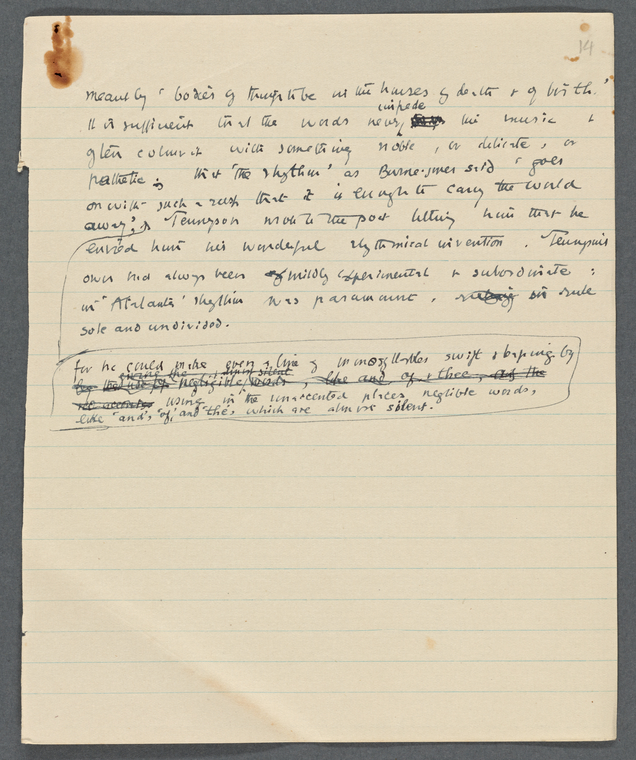 14
meant by ' bodies of things to be in the houses of death & of birth.'
It is sufficient that the words never impede the music &
often colour it with something noble, or delicate, or
pathetic; that 'the rhythm' as Burne-Jones said 'goes
on with such a rush that it is enough to carry the world
away'; Tennyson wrote to the poet telling him that he
envied him his wonderful rhythmical invention. Tennyson's
own had always been mildly experimental & subordinate:
in 'Atalanta' rhythm was paramount, in rule
sole and undivided.
For he could make even a line of monosyllables swift & leaping by
using the almost silent
negligible words, like and of & thee, as the
using in the unaccented places neglible words,
like 'and', 'of', and 'the', which are almost silent.